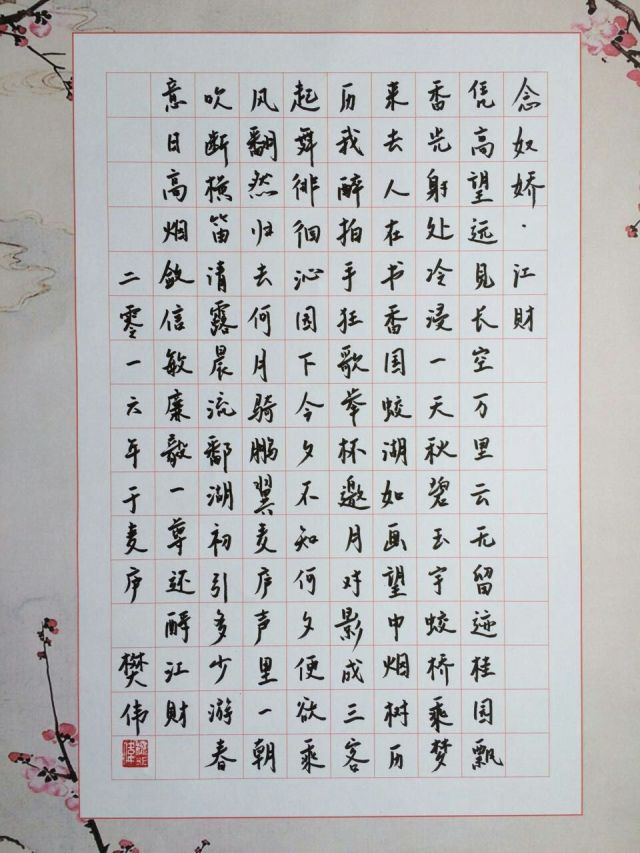 念奴娇·江財
凭高望远见长空万里云无留迹桂园飘
香光射处冷浸一天秋碧玉宇蛟桥乘梦
来去人在书香园蛟湖如画望中烟树历
历我醉拍手狂歌举杯邀月对影成三客
起舞徘徊沁园下今夕不知何夕便欲乘
风翻然归去何月骑鹏翼麦庐声里一朝
吹断横笛清露晨流鄱湖初引多少游春
意日高烟敛信敏廉毅一尊还酹江財
二零一六年于麦庐 樊伟